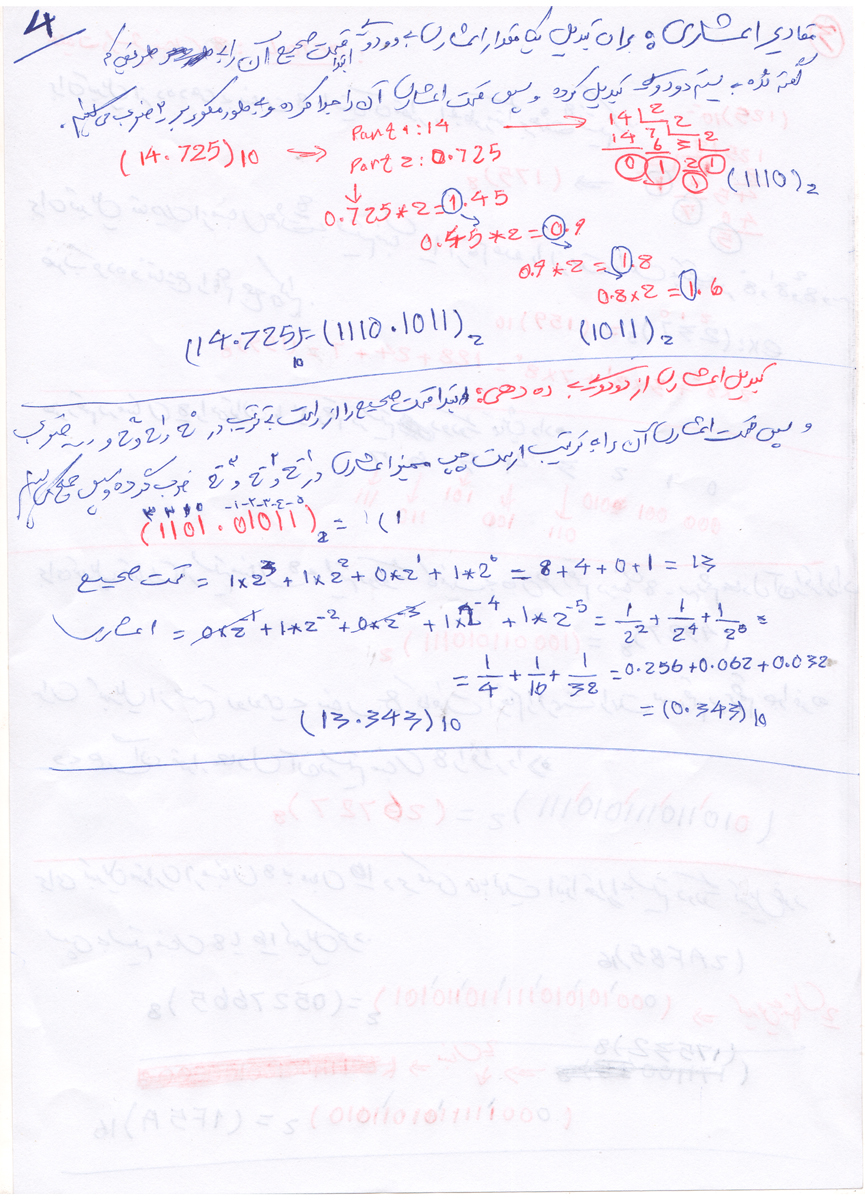 4
مقادیر اعشاری: برای تبدیل یک مقدار اعشاری به دودوئی ابتدا قسمت صحیح آن را به طریقی که
گفته شده به سیستم دودوئی تبدیل کرده و سپس قسمت اعشاری آن را جدا کرده و به طور مکرر بر ۲ ضرب می‌کنیم.
(14.725)10 → Part 1: 14 →
Part 2: 0.725
14 2
14 7 2
6 3 2
0 1 2 1
1
(1110)2
0.725*2=1.45
0.45*2=0.9
0.9*2=1.8
0.8*2=1.6
(14.725)10=(1110.1011)2 (1011)2
تبدیل اعشاری از دودوئی به ده دهی: ابتدا قسمت صحیح را از راست به ترتیب در 2^0 و 2^1 و 2^2 و ... ضرب
و سپس قسمت اعشاری آن را به ترتیب از سمت چپ ممیز اعشاری در 2^-1 و 2^-2 و 2^-3 ضرب کرده و سپس جمع می‌کنیم
۳ ۲ ۱ ۰ -۱-۲-۳-۴-۵
(1101.01011)2 =
قسمت صحیح = 1*2^3+1*2^2+0*2^1+1*2^0=8+4+0+1=13
اعشاری = 0*2^-1+1*2^-2+0*2^-3+1*2^-4+1*2^-5=1/2^2+1/2^4+1/2^5=
=1/4+1/16+1/32=0.256+0.062+0.032
(13.343)10 =(0.343)10